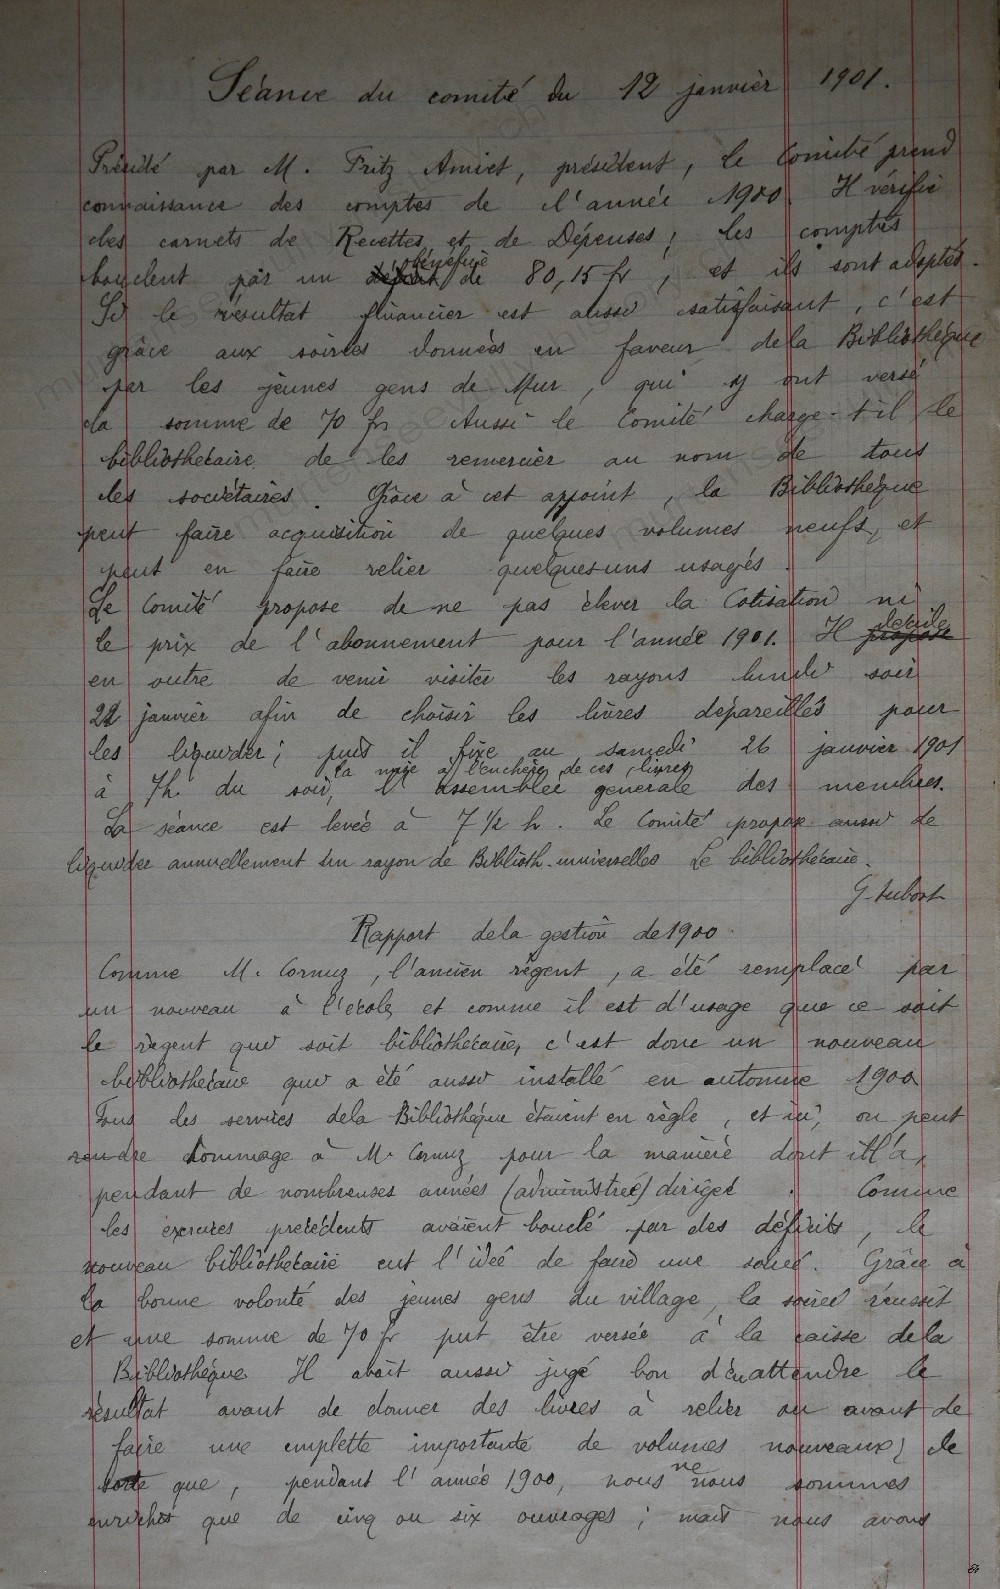 Séance du comité du 12 janvier 1901.
Présidé par M. Fritz Amiet, président, le Comité prend
connaissance des comptes de l'année 1900. Il vérifie
les carnets de Recettes et de Dépenses; les comptes
bénéfice
bouclent par un déficit de 80,15 fr, et ils sont adoptés.
Si le résultat financier est aussi satisfaisant, c'est
grâce aux soirées données en faveur de la Bibliothèque
par les jeunes gens de Mur, qui y ont versé
la somme de 70 fr Aussi le Comité charge-t'il le
bibliothécaire de les remercier au nom de tous
les sociétaires. Grâce à cet appoint, la Bibliothèque
peut faire acquisition de quelques volumes neufs, et
peut en faire relier quelques-uns usagés.
Le Comité propose de ne pas élever la Cotisation ni
décide
le prix de l'abonnement pour l'année 1901. Il propose
en outre de venir visiter les rayons lundi soir
22 janvier afin de choisir les livres dépareillés pour
les liquider; puis il fixe au samedi 26 janvier 1901
la mise à l'enchère de ces livres
à 7h. du soir, l'assemblée générale des membres.
La séance est levée à 7 1/2 h. Le Comité propose aussi de
liquider annuellement un rayon de Biblioth. universelles Le bibliothécaire.
G.
Rapport de la gestion de 1900
Comme M. Cornuz, l'ancien régent, a été remplacé par
un nouveau à l'école, et comme il est d'usage que ce soit
le régent qui soit bibliothécaire, c'est donc un nouveau
bibliothécaire qui a été aussi installé en automne 1900
Tous les services de la Bibliothèque étaient en règle, et ici, on peut
rendre hommage à M. Cornuz pour la manière dont il l'a,
pendant de nombreuses années (administrée) dirigée. Comme
les exercices précédents avaient bouclé par des déficits, le
nouveau bibliothécaire eut l'idée de faire une soirée. Grâce à
la bonne volonté des jeunes gens du village, la soirée réussit
et une somme de 70 fr put être versée à la caisse de la
Bibliothèque Il avait aussi jugé bon d'en attendre le
résultat avant de donner des livres à relier ou avant de
faire une emplette importante de volumes nouveaux; de
ne
sorte que, pendant l'année 1900, nous nous sommes
enrichis que de cinq ou six ouvrages; mais nous avons